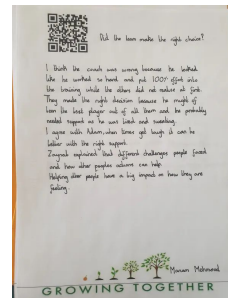 Did the team make the right choice?
I think the coach was wrong because he looked
like he worked so hard and put 100% effort into
the training while the others did not mature at first.
They made the right decision because he might of
been the best player out of all them and he probably
needed support as he was tired and sweating.
I agree with Adam, when times get tough it can be
better with the right support.
Zaynab explained that different challenges people faced
and how other peoples actions can help.
Helping other people have a big impact on how they are
feeling.
Manaan Mahmood
GROWING TOGETHER